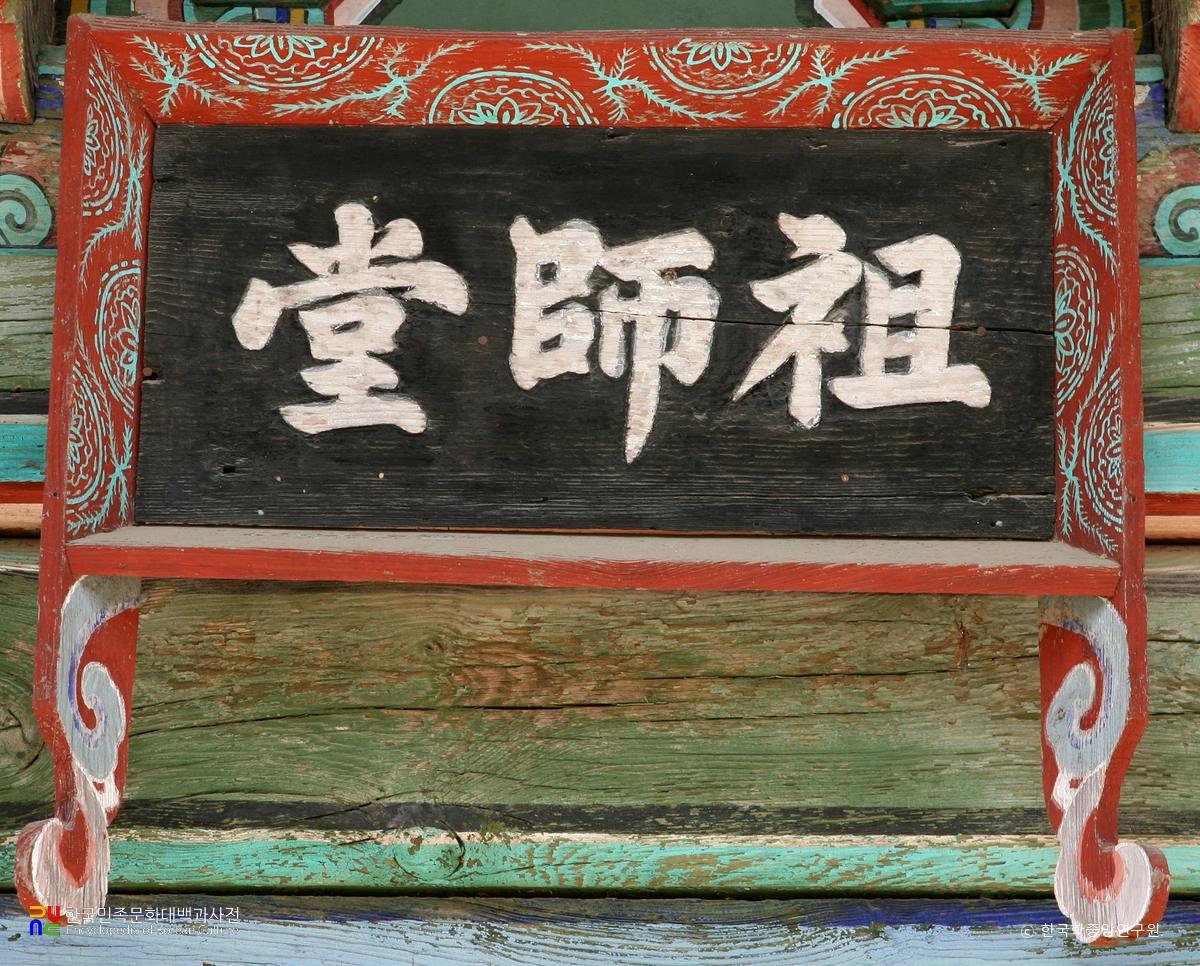 祖師堂
한국민족문화대백과사전
Encyclopedia of Korean Culture
© 한국학중앙연구원